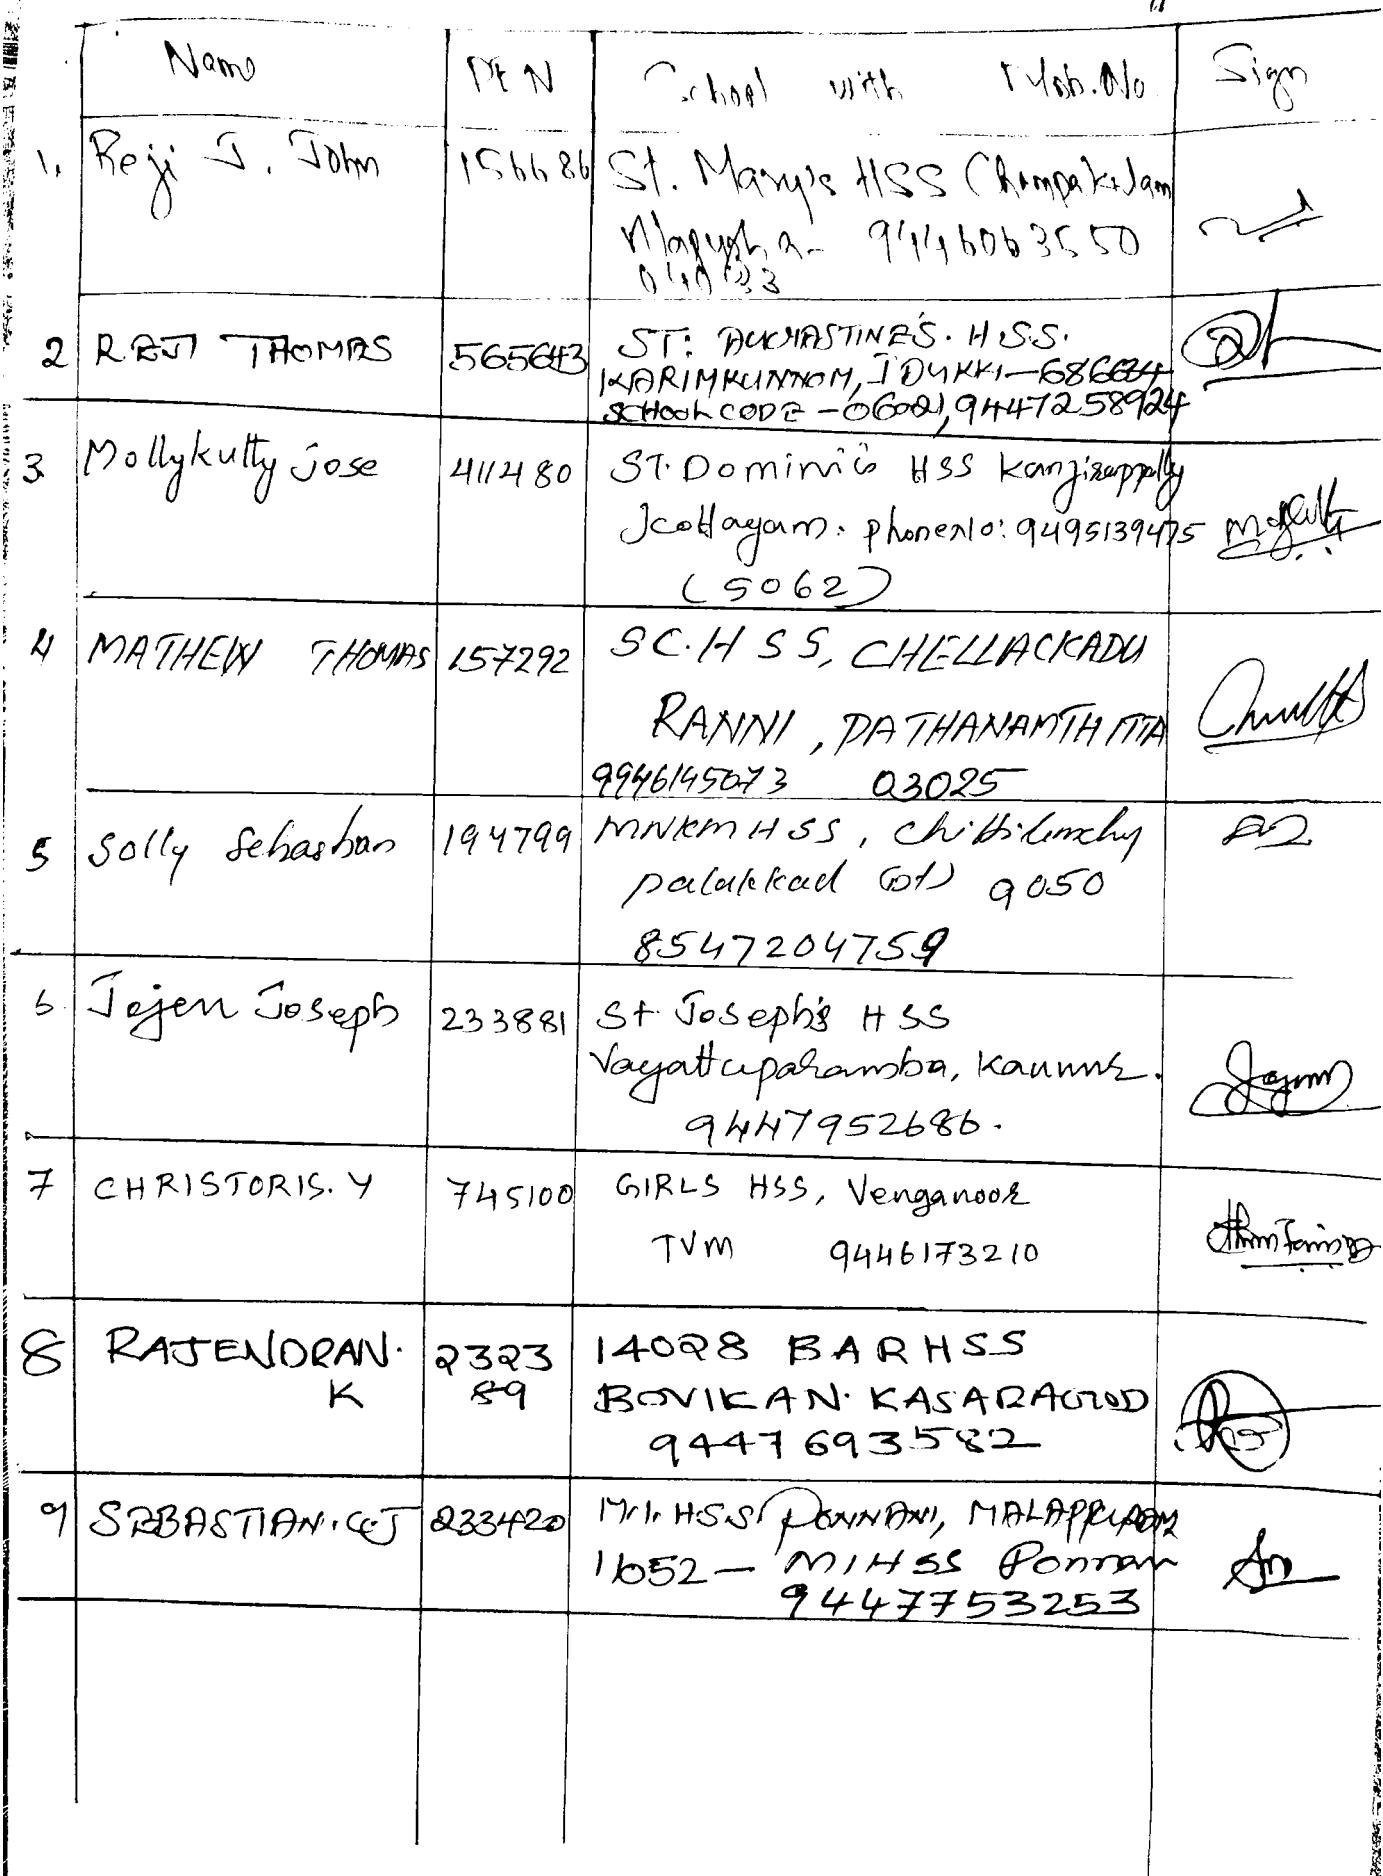 Name PEN School with Mob.No Sign
1. Reji J. John 156686 St. Mary's HSS Champakulam
9446063550
2 REJI THOMAS 565643 ST: AUGUSTINE'S. H.S.S.
KARIMKUNNOM, IDUKKI-686
SCHOOL CODE - 9447258924
3. Mollykutty jose 411480 ST. Dominic's HSS Kanjirappally
Kottayam. phone No: 9495139475
(5062)
4 MATHEW THOMAS 157292 SC.H S S, CHELLACKADU
RANNI, PATHANAMTHITTA
9946145073 03025
5 Solly Sebastian 194799 MNKM HSS,
palakkad 9050
8547204759
6 Jejen Joseph 233881 St Joseph's HSS
Vayattuparamba, Kannur.
9447952686.
7 CHRISTORIS. Y 745100 GIRLS HSS, Venganoor
TVM 9446173210
8 RAJENDRAN. 2323 14028 BARHSS
K 89 BOVIKAN. KASARAGOD
9447693582
9 SEBASTIAN. 233420 M.I. HSS PONNANI, MALAPPURAM
11052 - MIHSS
9447753253